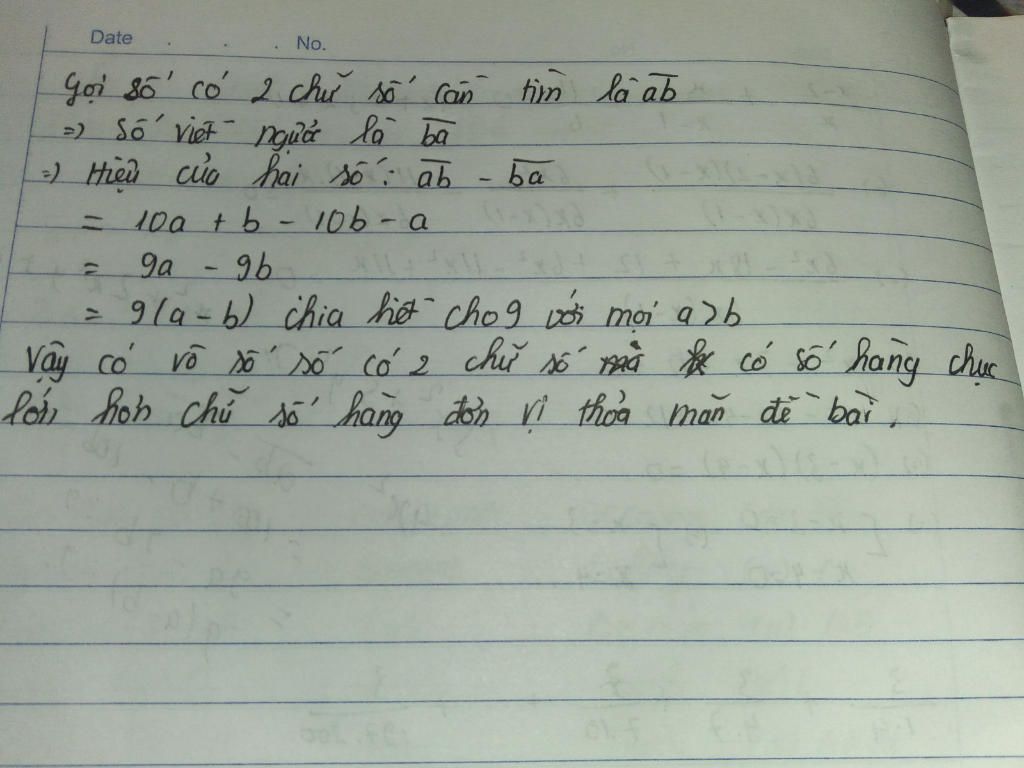 Date . . . No.
Gọi số có 2 chữ số cần tìm là ab
=> số viết ngược là ba
=> Hiệu của hai số: ab - ba
= 10a + b - 10b - a
= 9a - 9b
= 9(a - b) chia hết cho 9 với mọi a > b
Vậy có vô số số có 2 chữ số mà có số hàng chục
lớn hơn chữ số hàng đơn vị thỏa mãn đề bài.